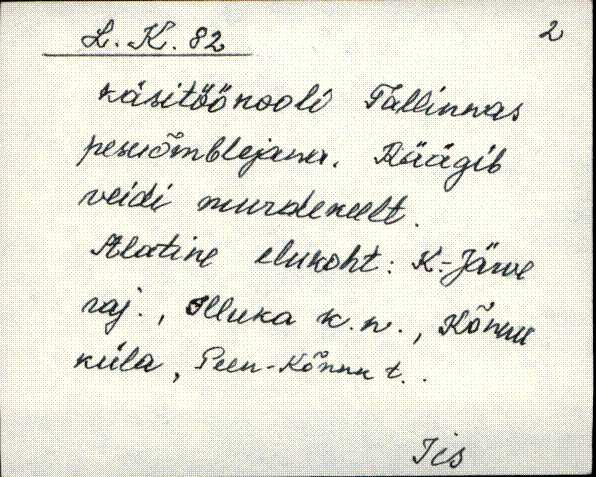 L. K. 82
2
käsitöökooli Tallinnas
pesuõmblejana. Räägib
veidi murdekeelt.
Alatine elukoht: K.-Järve
raj., Illuka k.n., Kõnnu
küla, Peen-Kõnnu t..
Iis